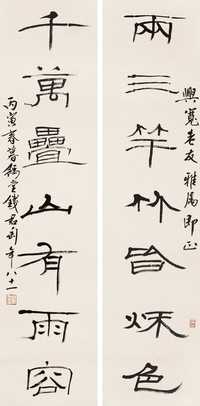 興寬老友雅屬即正
兩三竿竹皆秌色
千萬疊山有雨容
丙寅暮春豫堂錢君匋年八十一